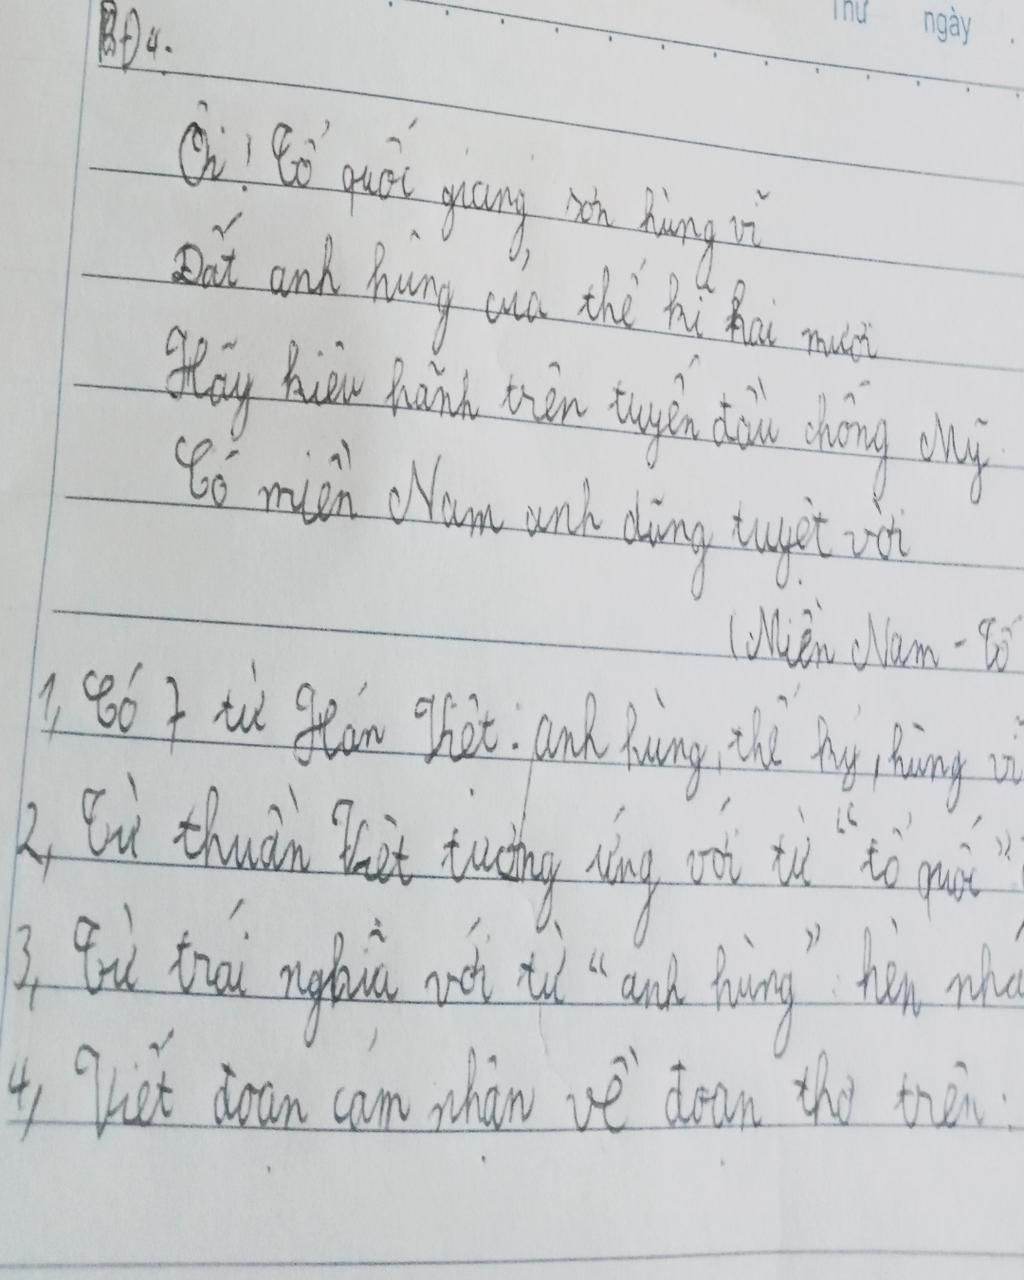 Thứ ngày .
BĐ4.
Ôi! Tổ quốc giang sơn hùng vĩ
Đất anh hùng của thế kỉ hai mươi
Hãy kiêu hãnh trên tuyến đầu chống Mỹ
Có miền Nam anh dũng tuyệt vời
(Miền Nam - Tố
1, Có 7 từ Hán Việt: anh hùng, thế kỷ, hùng vĩ
2, Từ thuần Việt tương ứng với từ "tổ quốc"
3, Từ trái nghĩa với từ "anh hùng": hèn nhá
4, Viết đoạn cảm nhận về đoạn thơ trên: